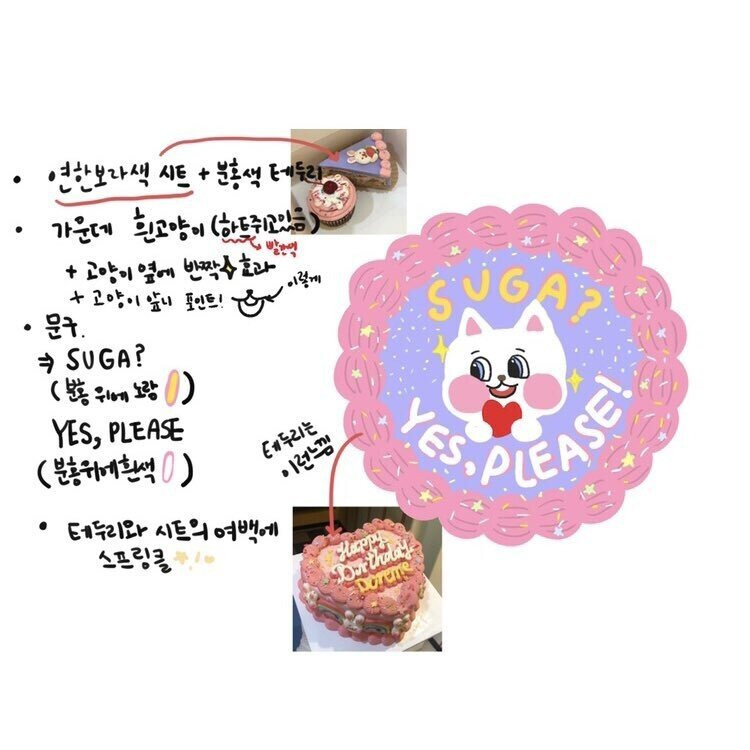 연한보라색 시트 + 분홍색 테두리
가운데 흰고양이 (하트쥐고있음)
빨간색
+ 고양이 옆에 반짝 효과
+ 고양이 앞니 포인트!
이렇게
문구.
⇒ SUGA?
(분홍 위에 노랑)
YES, PLEASE
(분홍위에흰색)
테두리와 시트의 여백에
스프링클
SUGA?
YES, PLEASE!
테두리는
이런느낌
Happy
Birthday
Doreme